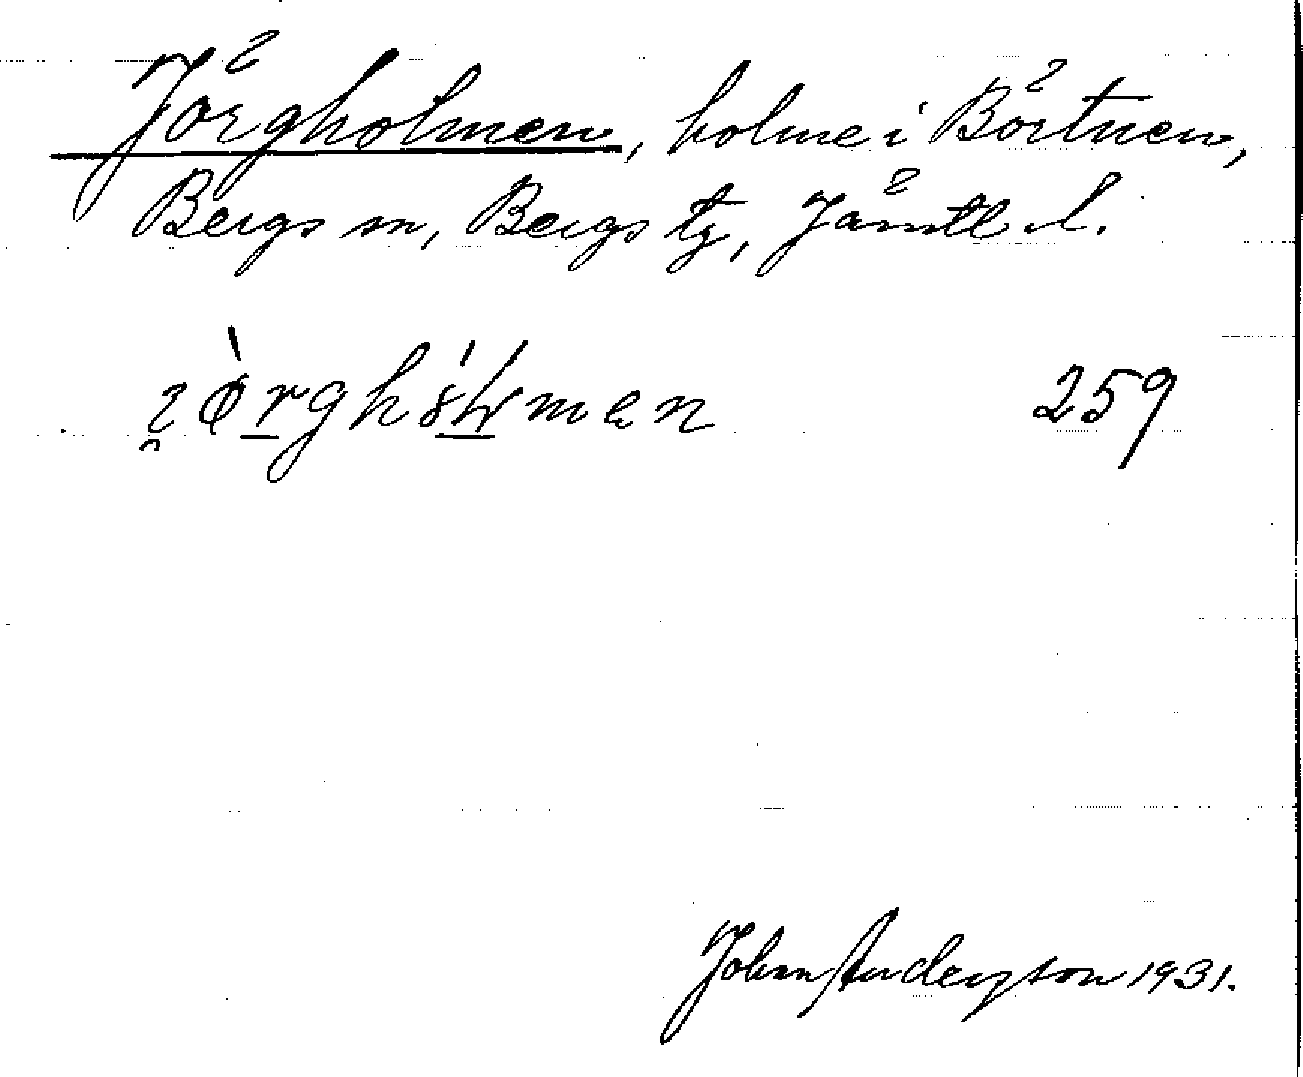 Jörgholmen, holme i Börtnen,
Bergs sn, Bergs tg, Jämtl. l.
259
Johan Anderson 1931.